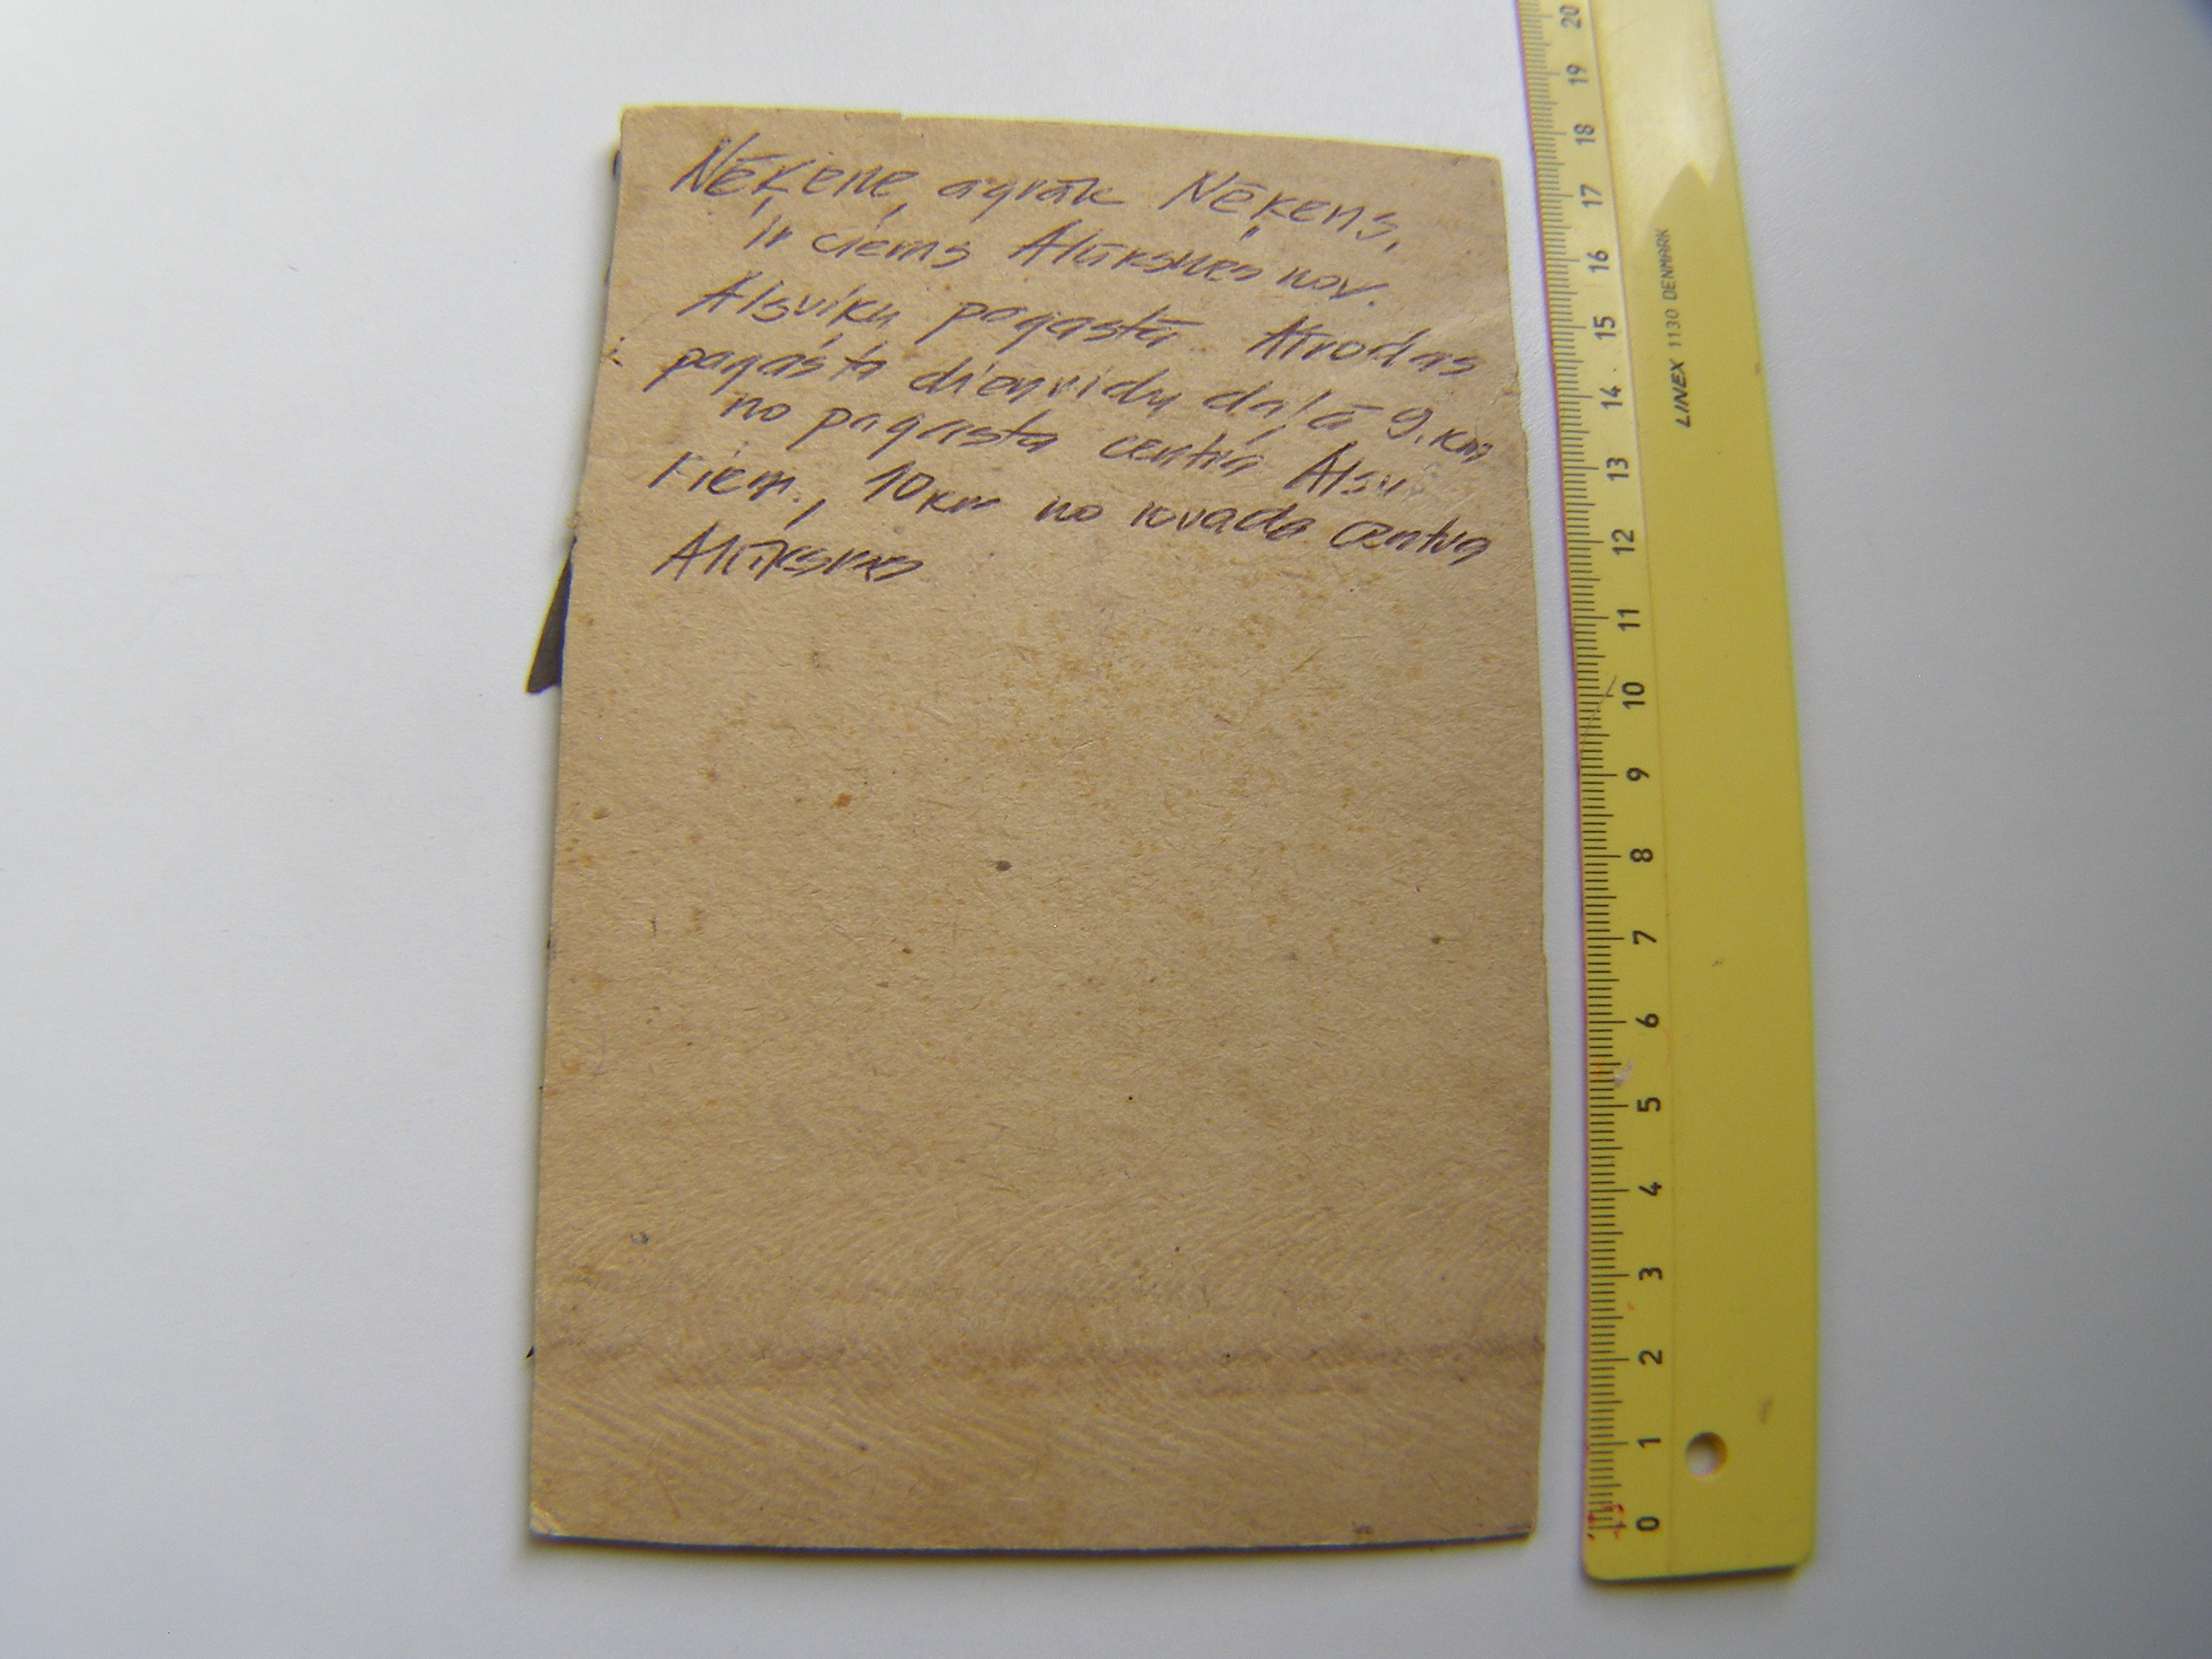 Nēķene, agrāk Nēķens,
ir ciems Alūksnes nov.
Alsviķu pagastā. Atrodas
pagasta dienvidu daļā 9. km
no pagasta centra Alsvi
ķiem, 10 km no novada centra
Alūksnes
LINEX 1130 DENMARK
20
19
18
17
16
15
14
13
12
11
10
9
8
7
6
5
4
3
2
1
0